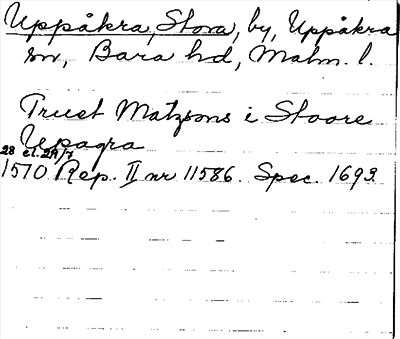 Uppåkra, Stora, by, Uppåkra
sn, Bara hd, Malm. l.
Truet Matzsons i Stoore
Upagra
28 el. 29/7
1570 Rep. II nr 11586. Spec. 1693.